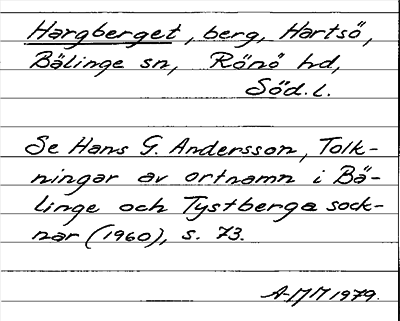 Hargberget, berg, Hartsö,
Bälinge sn, Rönö hd,
Söd. l.
Se Hans G. Andersson, Tolk-
ningar av ortnamn i Bä-
linge och Tystberga sock-
nar (1960), s. 73.
AMM 1979.